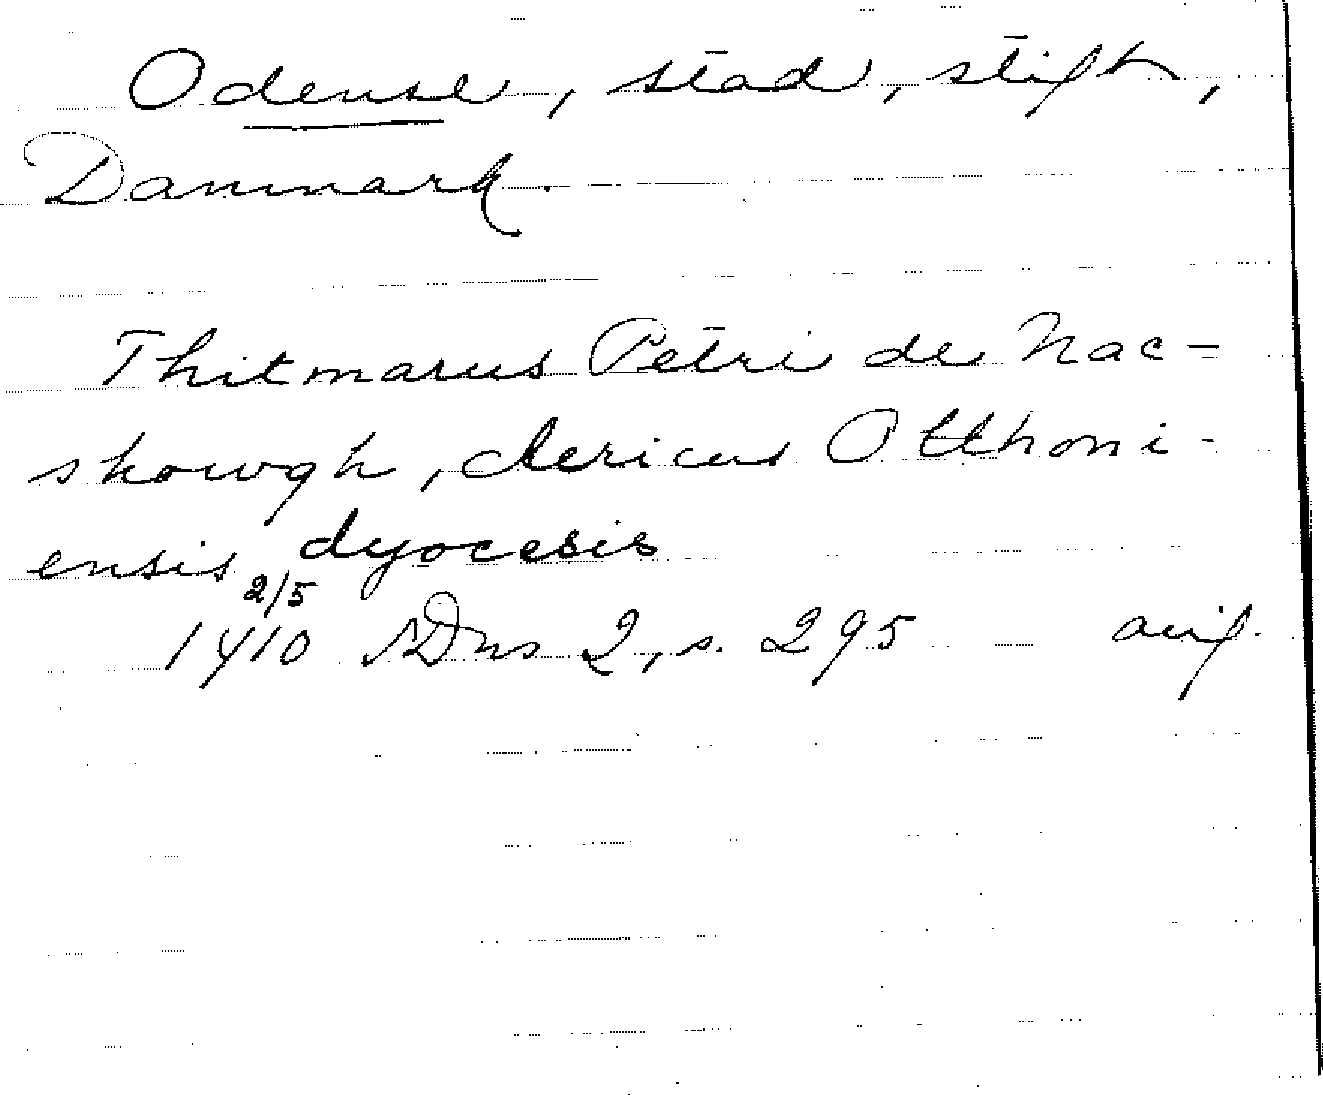 Odense, stad, stift,
Danmark.
Thitmarus Petri de Nac-
skowgh, clericus Otthoni-
ensis dyocesis
2/5
1410 SDns 2, s. 295 avs.